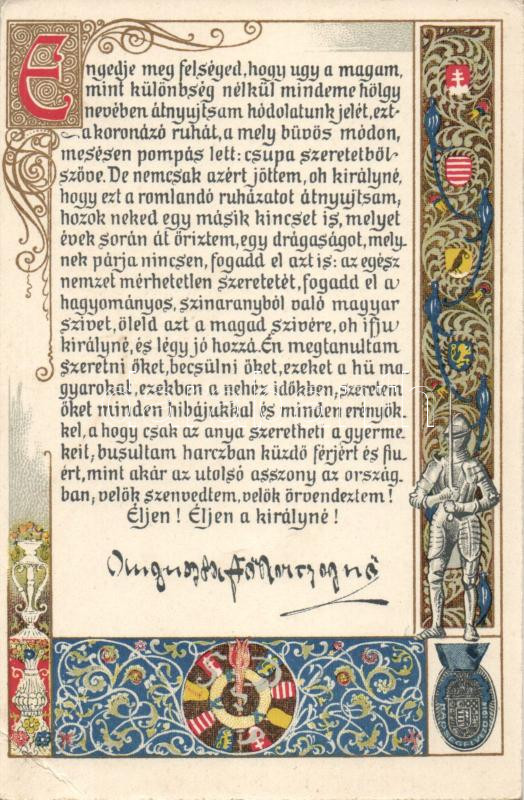 Engedje meg felséged, hogy ugy a magam,
mint különbség nélkül mindeme hölgy
nevében átnyujtsam hódolatunk jelét, ezt-
a koronázó ruhát, a mely büvös módon,
mesésen pompás lett: csupa szeretetből
szöve. De nemcsak azért jöttem, oh királyné,
hogy ezt a romlandó ruházatot átnyujtsam,
hozok neked egy másik kincset is, melyet
évek során át őriztem, egy drágaságot, mely-
nek párja nincsen, fogadd el azt is: az egész
nemzet mérhetetlen szeretetét, fogadd el a
hagyományos, szinaranyból való magyar
szivet, öleld azt a magad szivére, oh ifju
királyné, és légy jó hozzá. Én megtanultam
szeretni őket, becsülni őket, ezeket a hü ma
gyarokat, ezekben a nehéz időkben, szeretem
őket minden hibájukkal és minden erényök-
kel, a hogy csak az anya szeretheti a gyerme-
keit; busultam harczban küzdő férjért és fiu
ért, mint akár az utolsó asszony az ország-
ban; velök szenvedtem, velök örvendeztem!
Éljen! Éljen a királyné!
Auguszta Főherczegnő